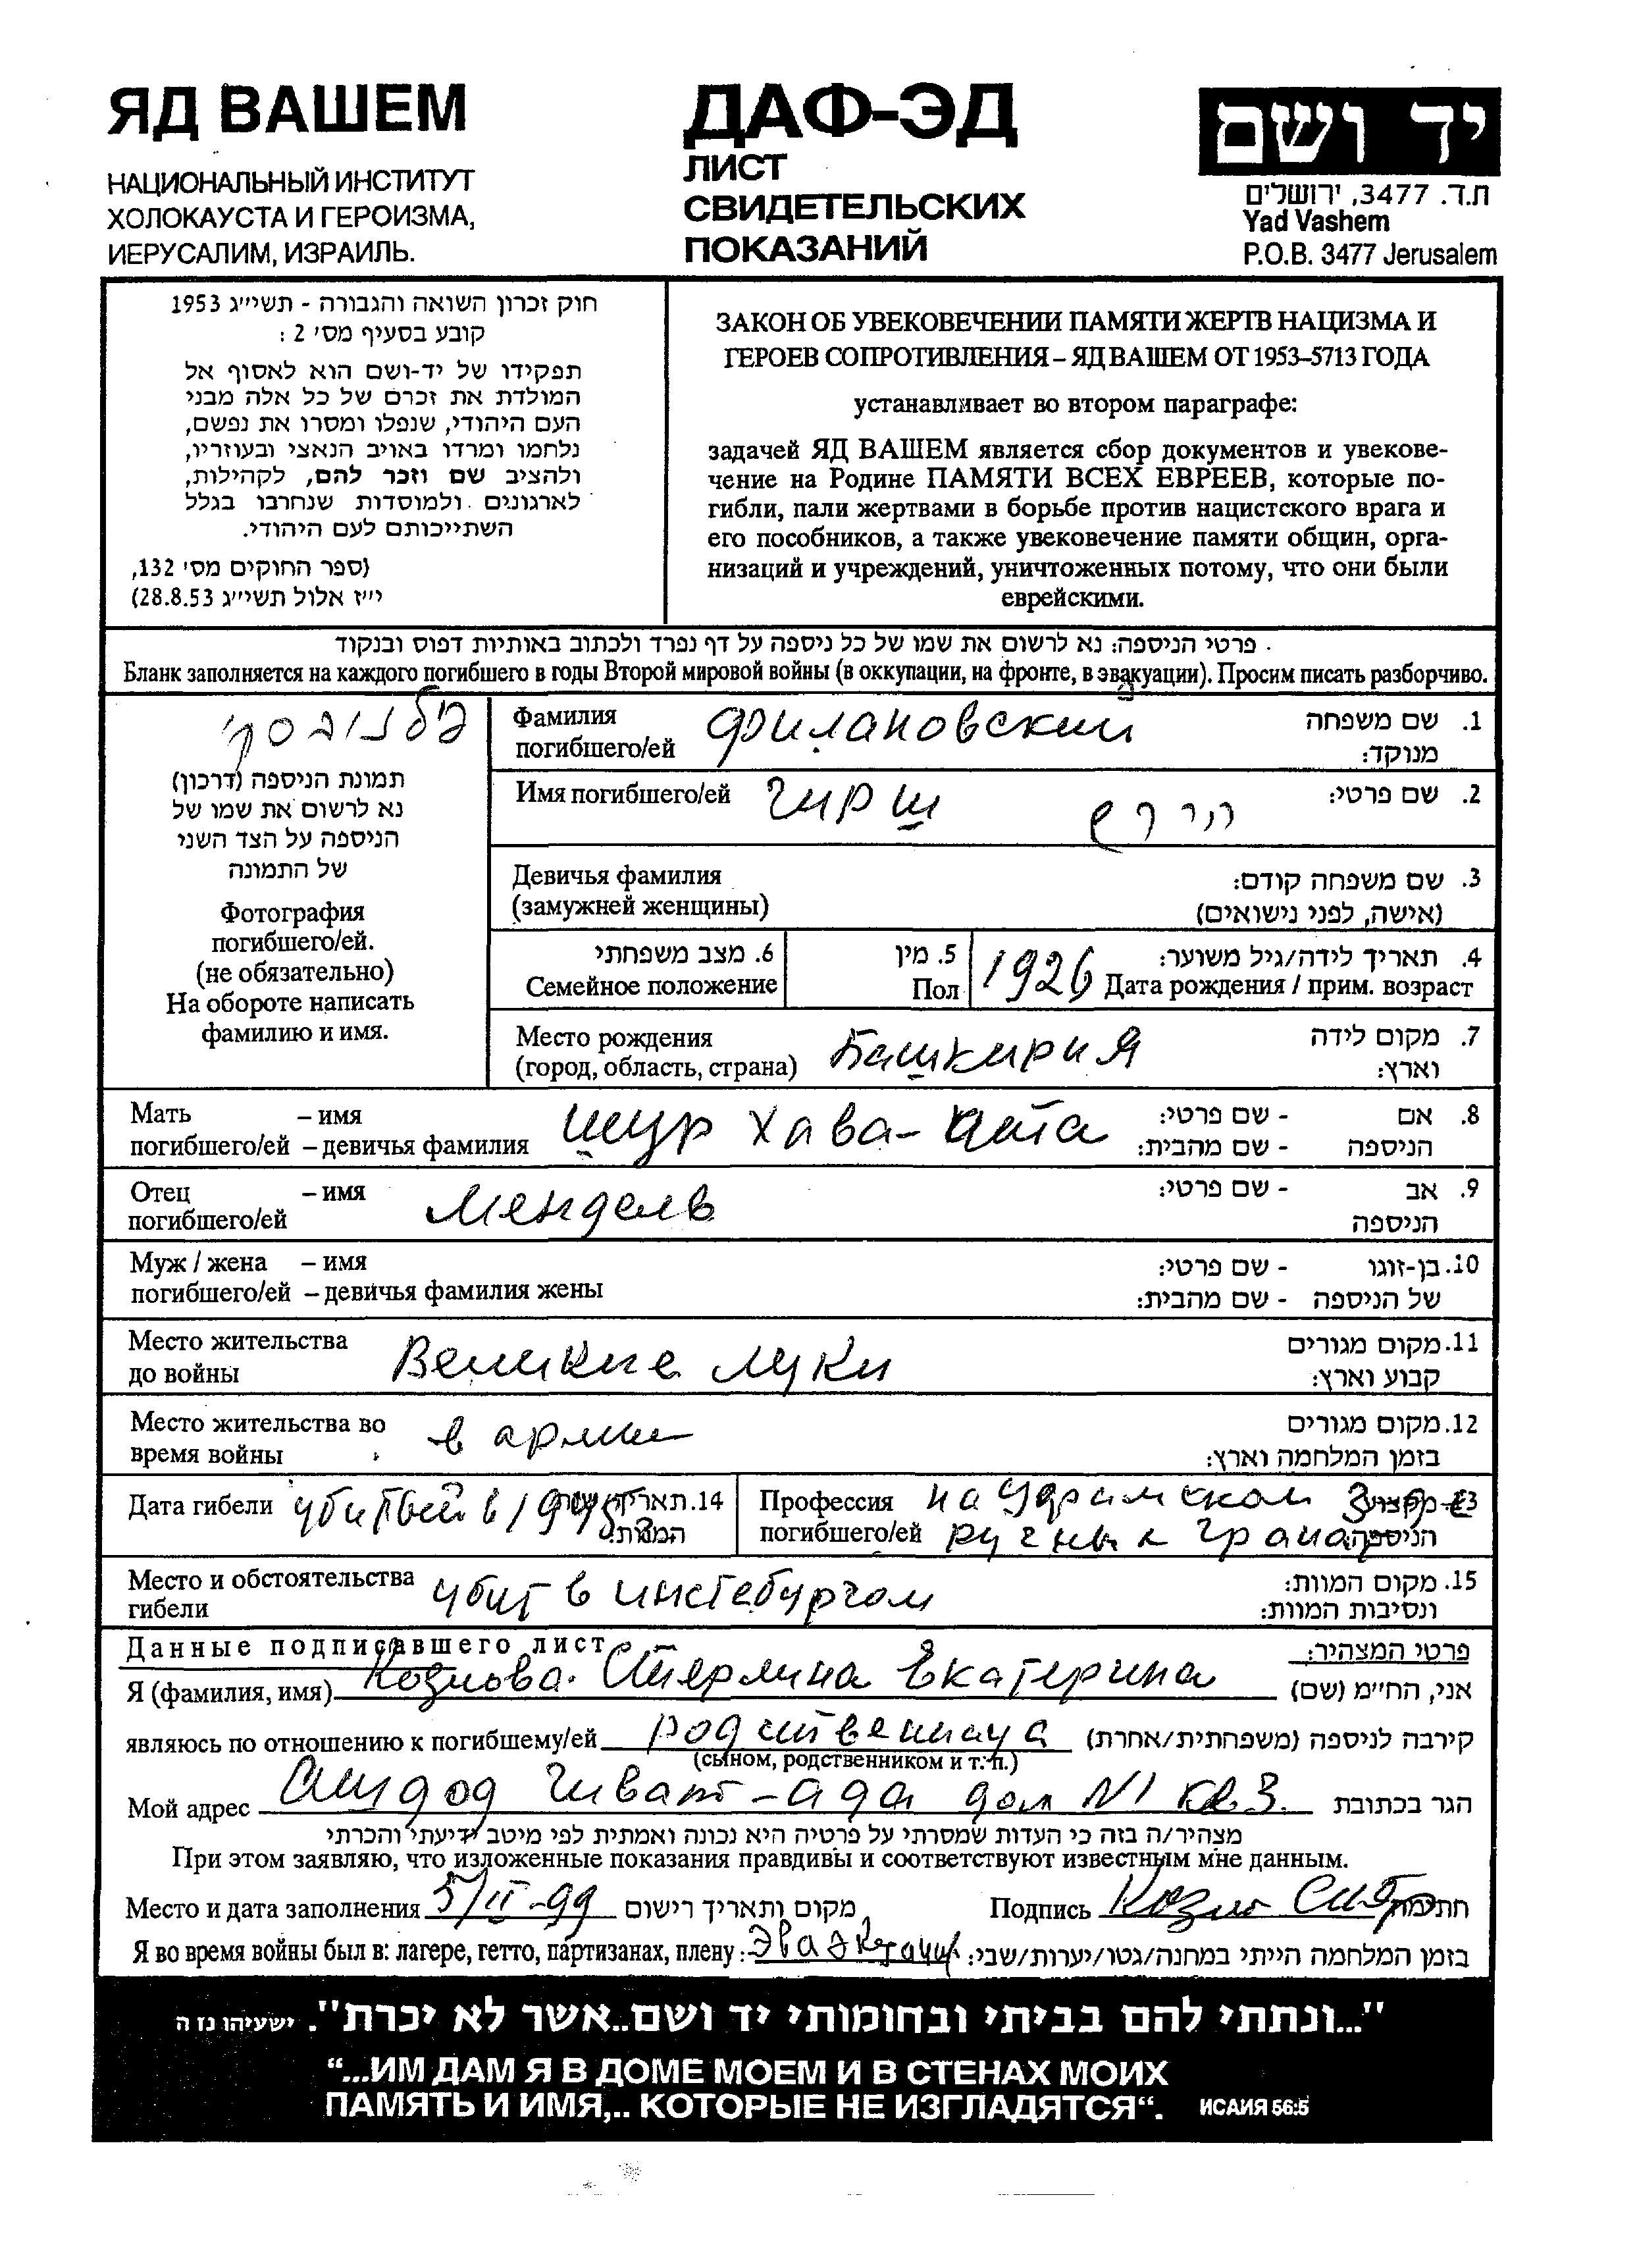 ЯД ВАШЕМ
НАЦИОНАЛЬНЫЙ ИНСТИТУТ
ХОЛОКАУСТА И ГЕРОИЗМА,
ИЕРУСАЛИМ, ИЗРАИЛЬ.
ДАФ-ЭД
ЛИСТ
СВИДЕТЕЛЬСКИХ
ПОКАЗАНИЙ
יד ושם
ת.ד. 3477, ירושלים
Yad Vashem
P.O.B. 3477 Jerusalem
חוק זכרון השואה והגבורה - תשי״ג 1953
קובע בסעיף מס׳ 2 :
תפקידו של יד-ושם הוא לאסוף אל
המולדת את זכרם של כל אלה מבני
העם היהודי, שנפלו ומסרו את נפשם,
נלחמו ומרדו באויב הנאצי ובעוזריו,
ולהציב שם וזכר להם, לקהילות,
לארגונים ולמוסדות שנחרבו בגלל
השתייכותם לעם היהודי.
(ספר החוקים מס׳ 132,
י״ז אלול תשי״ג 28.8.53)
ЗАКОН ОБ УВЕКОВЕЧЕНИИ ПАМЯТИ ЖЕРТВ НАЦИЗМА И
ГЕРОЕВ СОПРОТИВЛЕНИЯ – ЯД ВАШЕМ ОТ 1953–5713 ГОДА
устанавливает во втором параграфе:
задачей ЯД ВАШЕМ является сбор документов и увекове-
чение на Родине ПАМЯТИ ВСЕХ ЕВРЕЕВ, которые по-
гибли, пали жертвами в борьбе против нацистского врага и
его пособников, а также увековечение памяти общин, орга-
низаций и учреждений, уничтоженных потому, что они были
еврейскими.
פרטי הניספה: נא לרשום את שמו של כל ניספה על דף נפרד ולכתוב באותיות דפוס ובנקוד
Бланк заполняется на каждого погибшего в годы Второй мировой войны (в оккупации, на фронте, в эвакуации). Просим писать разборчиво.
פילנובסקי
תמונת הניספה (דרכון)
נא לרשום את שמו של
הניספה על הצד השני
של התמונה
Фотография
погибшего/ей.
(не обязательно)
На обороте написать
фамилию и имя.
Фамилия Филановский 1. שם משפחה
погибшего/ей מנוקד:
Имя погибшего/ей Гирш הירש 2. שם פרטי:
Девичья фамилия 3. שם משפחה קודם:
(замужней женщины) (אישה, לפני נישואים)
6. מצב משפחתי 5. מין 1926 4. תאריך לידה/גיל משוער:
Семейное положение Пол Дата рождения / прим. возраст
Место рождения Башкирия 7. מקום לידה
(город, область, страна) וארץ:
Мать – имя 8. אם - שם פרטי:
погибшего/ей – девичья фамилия шур Хава- הניספה - שם מהבית:
Отец – имя Мендель 9. אב - שם פרטי:
погибшего/ей הניספה
Муж / жена – имя 10. בן-זוגו - שם פרטי:
погибшего/ей – девичья фамилия жены של הניספה - שם מהבית:
Место жительства Великие луки 11. מקום מגורים
до войны קבוע וארץ:
Место жительства во в армии 12. מקום מגורים
время войны בזמן המלחמה וארץ:
Дата гибели убитый в 1945 14. תאריך המוות:
Профессия на
погибшего/ей ручных гранат הניספה:
Место и обстоятельства убит в инстебургом 15. מקום המוות:
гибели ונסיבות המוות:
Данные подписавшего лист פרטי המצהיר:
Я (фамилия, имя) Козлова Стерлина Екатерина אני, החי״מ (שם)
являюсь по отношению к погибшему/ей родственница קירבה לניספה (משפחתית/אחרת)
(сыном, родственником и т. п.)
Мой адрес Ашдод Гиват-Ада дом N1 кв 3. הגר בכתובת
מצהיר/ה בזה כי העדות שמסרתי על פרטיה היא נכונה ואמתית לפי מיטב ידיעתי והכרתי
При этом заявляю, что изложенные показания правдивы и соответствуют известным мне данным.
Место и дата заполнения 5/II-99 מקום ותאריך רישום Подпись חתימה
Я во время войны был в: лагере, гетто, партизанах, плену: בזמן המלחמה הייתי במחנה/גטו/יערות/שבי:
"...ונתתי להם בביתי ובחומותי יד ושם..אשר לא יכרת". ישעיהו נז ה
“...ИМ ДАМ Я В ДОМЕ МОЕМ И В СТЕНАХ МОИХ
ПАМЯТЬ И ИМЯ,.. КОТОРЫЕ НЕ ИЗГЛАДЯТСЯ“. ИСАИЯ 56:5